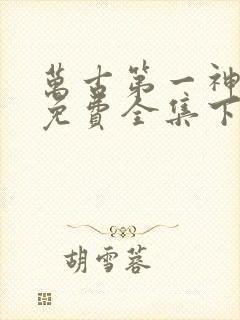 萬古第一神
免費全集下
胡雪蓉